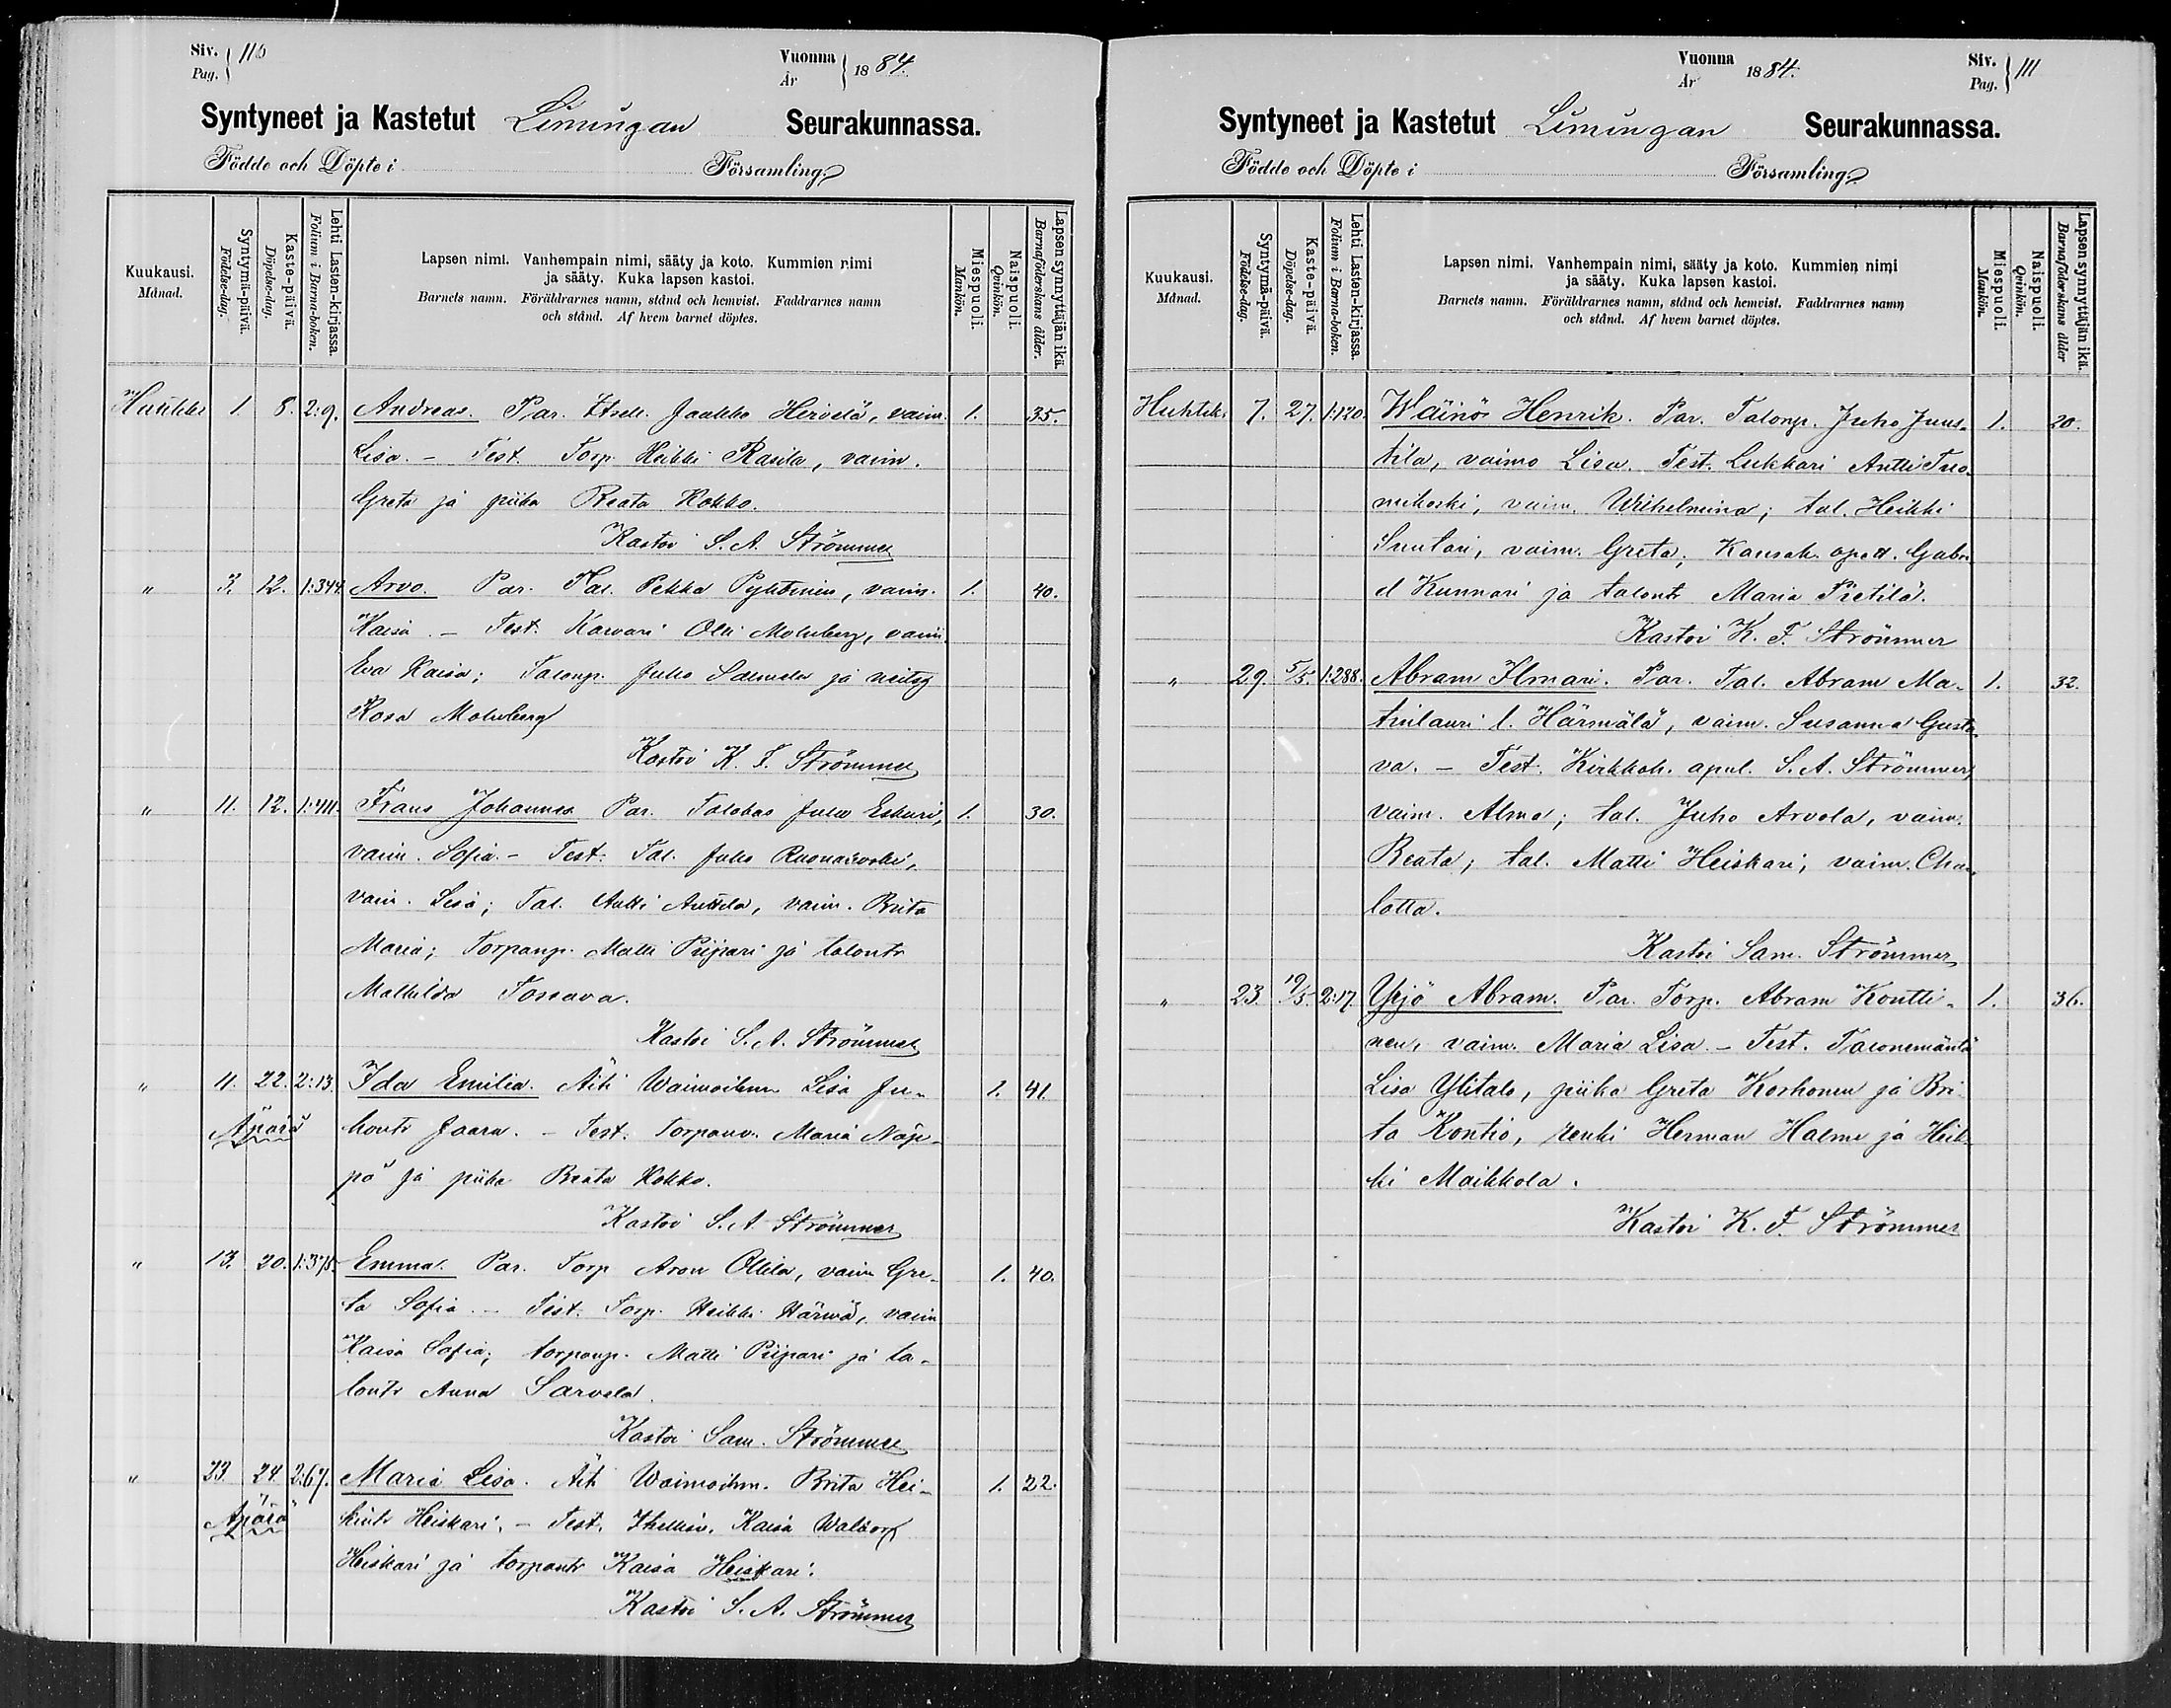 Siv. Pag. 110
Vuonna År 1884.
Syntyneet ja Kastetut Limingan Seurakunnassa.
Födde och Döpte i Församling.
Kuukausi. Månad.
Syntymä-päivä. Födelse-dag.
Kaste-päivä. Döpelse-dag.
Lehti Lasten-kirjassa. Folium i Barna-boken.
Lapsen nimi. Vanhempain nimi, sääty ja koto. Kummien nimi
ja sääty. Kuka lapsen kastoi.
Barnets namn. Föräldrarnes namn, stånd och hemvist. Faddrarnes namn
och stånd. Af hvem barnet döptes.
Miespuoli. Mankön.
Naispuoli. Qvinkön.
Lapsen synnyttäjän ikä. Barnaföderskans ålder.
Huhtik. 1. 8. 2:9. Andreas. Par. Itsell. Jaakko Hervelä, vaim. 1. 35.
Lisa. – Test. Torp. Heikki Rasila, vaim.
Greta ja piika Beata Kokko.
Kastoi S. A. Strömmer
" 3. 12. 1:344. Arvo. Par. Tal. Pekka Pyhtinen, vaim. 1. 40.
Kaisa. – Test. Karvari Olli Molnberg, vaim.
Eva Kaisa; Talonp. Juho Salmela ja neitsy
Rosa Molnberg
Kastoi K. F. Strömmer
" 11. 12. 1:411. Frans Johannes. Par. Talokas Juho Eskuri, 1. 30.
vaim. Sofia. – Test. Tal. Juho Ruonakoski,
vaim. Lisa; Tal. Antti Anttila, vaim. Brita
Maria; Torpanp. Matti Piipari ja talontr
Mathilda Tossava.
Kastoi S. A. Strömmer
" 11. 22. 2:13. Ida Emilia. Äiti Waimoihm. Lisa Ju- 1. 41.
Äpärä hontr Jaara. – Test. Torpanv. Maria Näp-
pä ja piika Beata Kokko.
Kastoi S. A. Strömmer
" 13. 20. 1:375. Emma. Par. Torp. Aron Ollila, vaim Gre- 1. 40.
ta Sofia. – Test. Torp. Heikki Härmä, vaim
Kaisa Sofia; torpanp. Matti Piipari ja ta-
lontr Anna Sarvela.
Kastoi Sam. Strömmer
" 23. 24. 2:67. Maria Lisa. Äiti Waimoihm. Brita Hei- 1. 22.
Äpärä kintr Heiskari. – Test. Itsellisv. Kaisa Walborg
Heiskari ja torpantr Kaisa Heiskari.
Kastoi S. A. Strömmer
Vuonna År 1884.
Siv. Pag. 111
Syntyneet ja Kastetut Limingan Seurakunnassa.
Födde och Döpte i Församling.
Kuukausi. Månad.
Syntymä-päivä. Födelse-dag.
Kaste-päivä. Döpelse-dag.
Lehti Lasten-kirjassa. Folium i Barna-boken.
Lapsen nimi. Vanhempain nimi, sääty ja koto. Kummien nimi
ja sääty. Kuka lapsen kastoi.
Barnets namn. Föräldrarnes namn, stånd och hemvist. Faddrarnes namn
och stånd. Af hvem barnet döptes.
Miespuoli. Mankön.
Naispuoli. Qvinkön.
Lapsen synnyttäjän ikä. Barnaföderskans ålder
Huhtik. 7. 27. 1:120. Wäinö Henrik. Par. Talonp. Juho Juus- 1. 20.
tila, vaimo Lisa. Test. Lukkari Antti Tuo-
mikoski, vaim. Wilhelmina; tal. Heikki
Suutari, vaim. Greta; Kansak. opett. Gabri-
el Kunnari ja talontr Maria Pietilä.
Kastoi K. F. Strömmer
" 29. 5/5. 1:288. Abram Ilmari. Par. Tal. Abram Ma- 1. 32.
tinlauri l. Härmälä, vaim. Susanna Gusta-
va. – Test. Kirkkoh. apul. S. A. Strömmer,
vaim. Alma; tal. Juho Arvola, vaim.
Beata; tal. Matti Heiskari, vaim. Char-
lotta.
Kastoi Sam. Strömmer
" 23. 10/5. 2:17. Yrjö Abram. Par. Torp. Abram Kontti- 1. 36.
nen, vaim. Maria Lisa. – Test. Talonemäntä
Lisa Ylitalo, piika Greta Korhonen ja Bri-
ta Kontio, renki Herman Halme ja Heik-
ki Maikkola.
Kastoi K. F. Strömmer